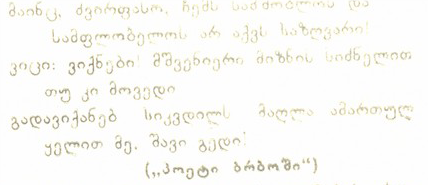 მაინც, ძვირფასო, ჩემს სამშობლოს და
სამფლობელოს არ აქვს საზღვარი!
ვიცი: ვიქნები! მშვენიერი მიზნის სიძნელით
თუ კი მოვედი
გადავიქანებ სიკვდილს მაღლა ამართულ
ყელით მე, შავი გედი!
(„პოეტი ბრბოში“)